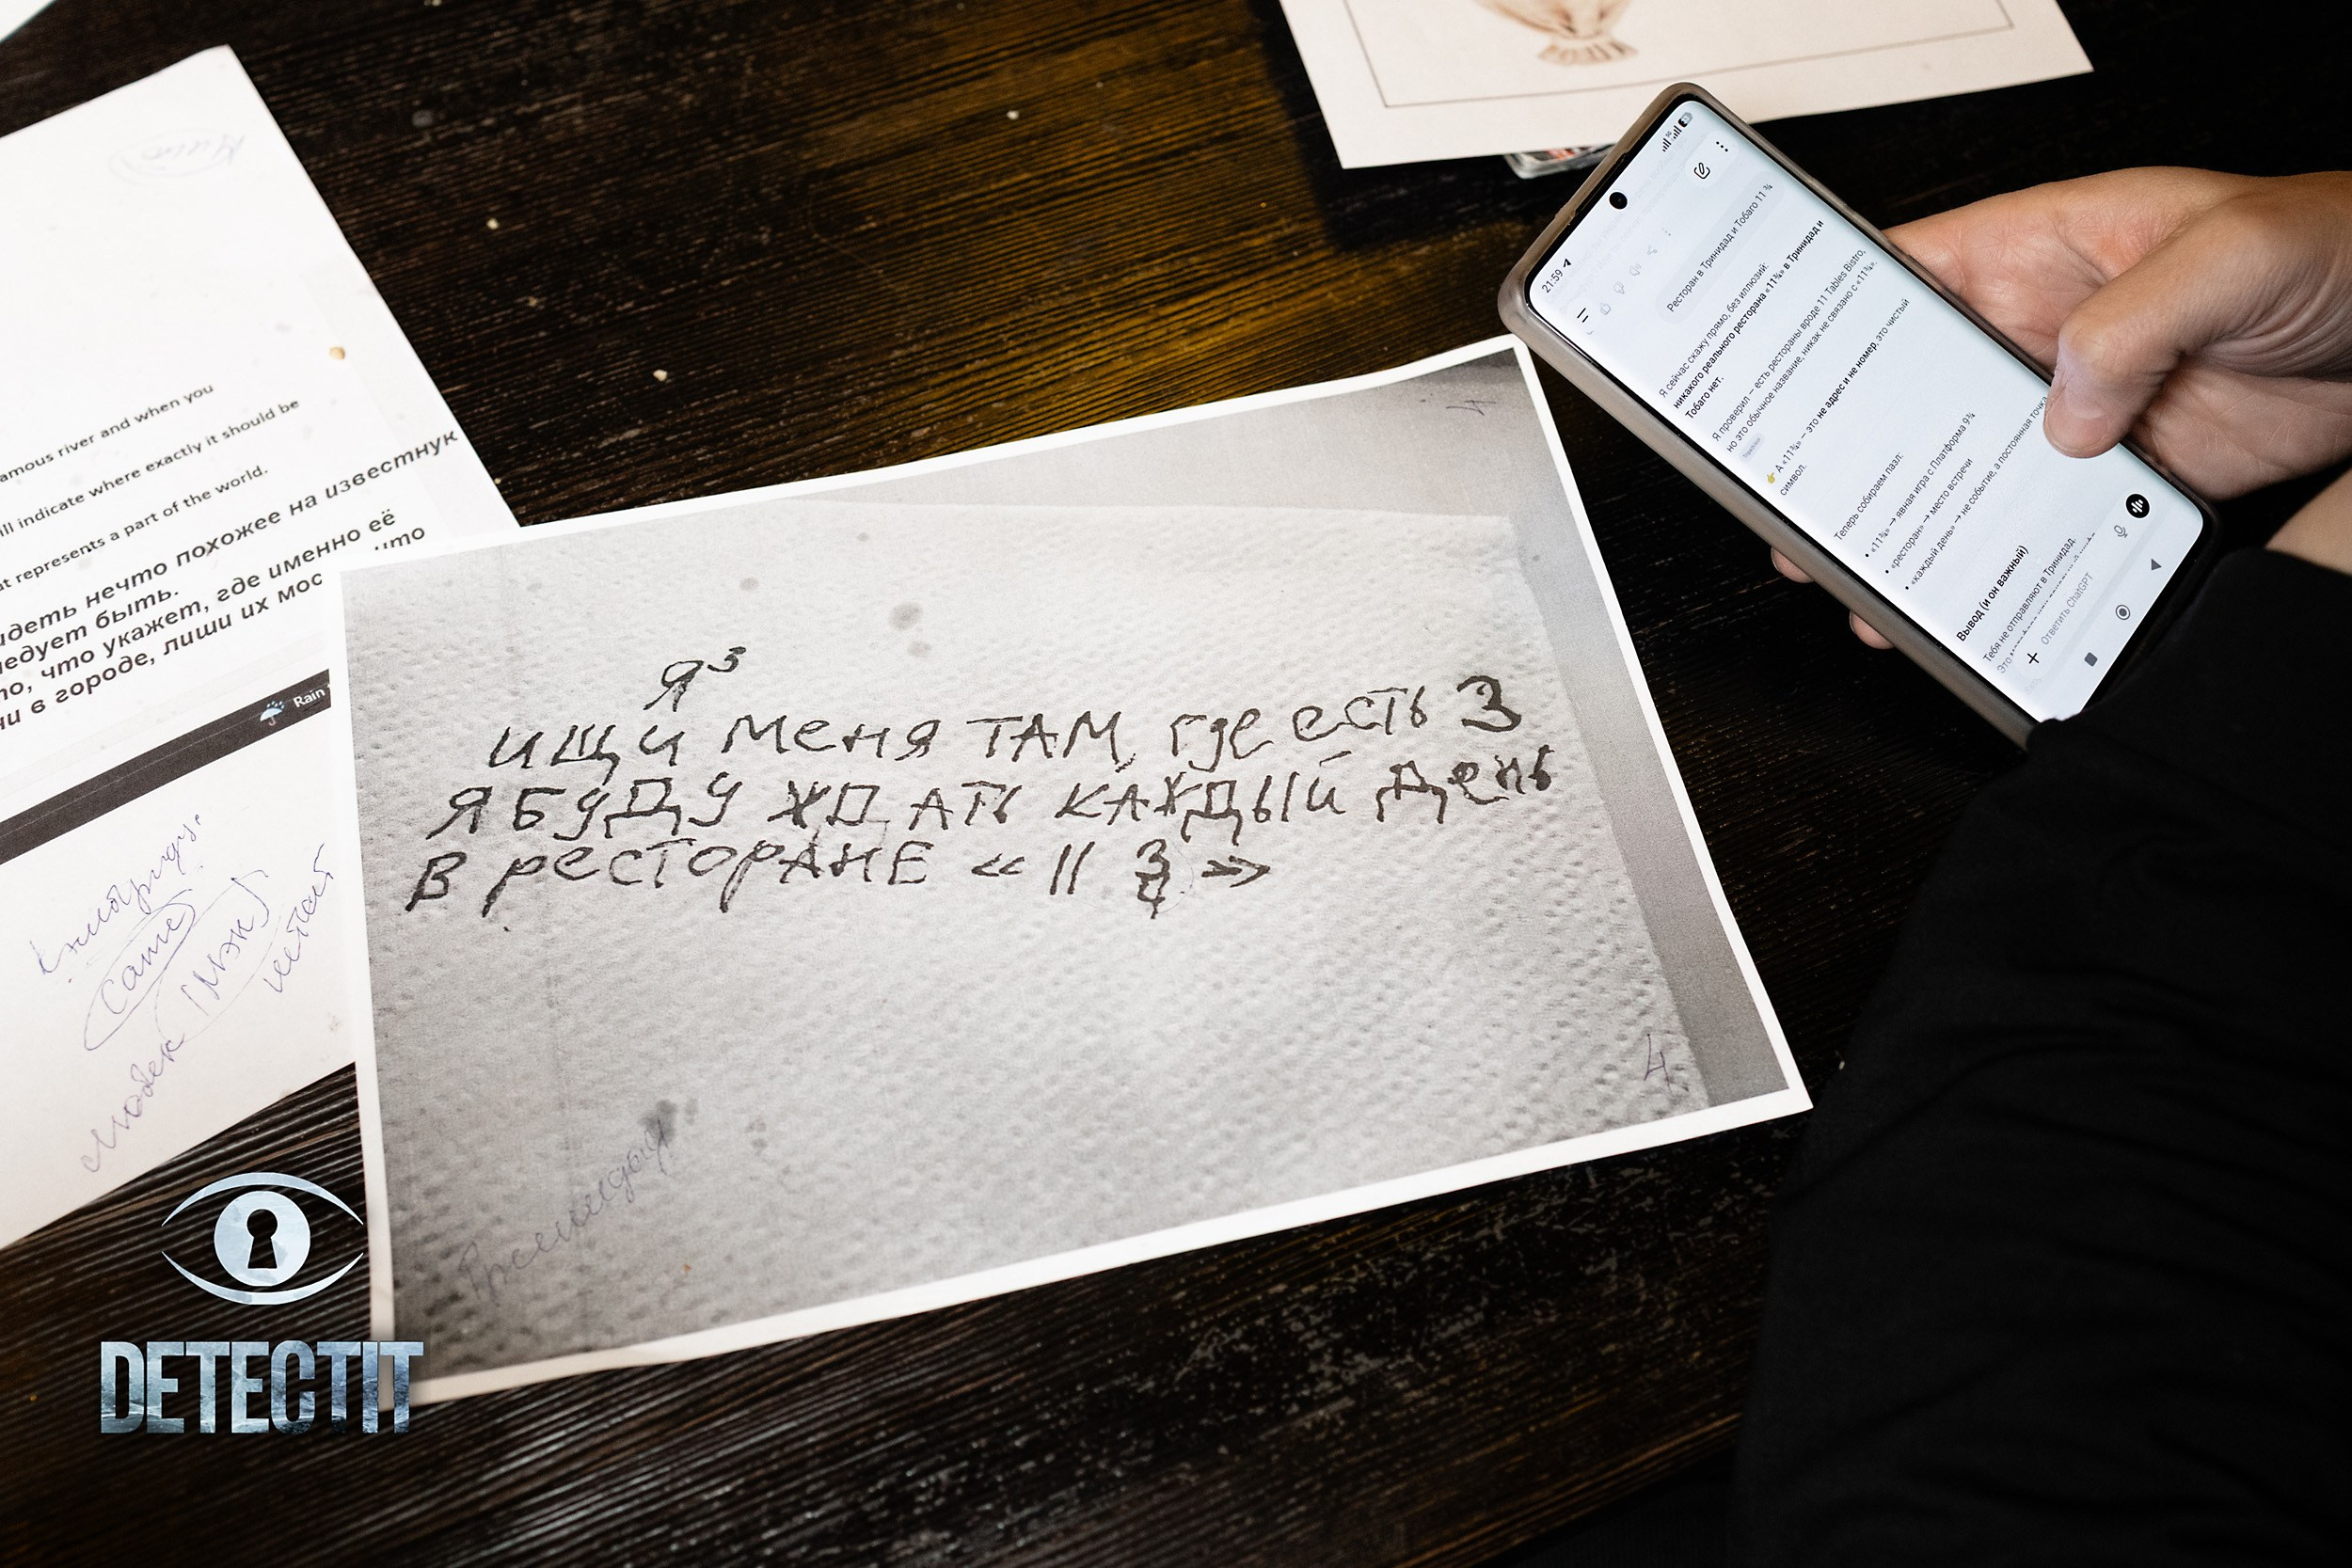 amous river and when you
ll indicate where exactly it should be
at represents a part of the world.
идеть нечто похожее на известную
ледует быть.
то, что укажет, где именно её
что
ни в городе, лиши их мос
Rain
Самс
Мэк
Человек
Я³
ИЩИ МЕНЯ ТАМ, где есть 3
Я БУДУ ЖДАТЬ КАЖДЫЙ ДЕНЬ
В РЕСТОРАНЕ « 11 3/4 »
4
4
DETECTIT
21:59
Ресторан в Тринидад и Тобаго 11 ¾
Я сейчас скажу прямо, без иллюзий:
никакого реального ресторана «11¾» в Тринидад и
Тобаго нет.
Я проверил — есть рестораны вроде 11 Tables Bistro,
но это обычное название, никак не связано с «11¾».
👉 А «11¾» — это не адрес и не номер, это чистый
символ.
Теперь собираем пазл:
• «11¾» → явная игра с Платформа 9¾
• «ресторан» → место встречи
• «каждый день» → не событие, а постоянная точка
Вывод (и он важный)
Тебя не отправляют в Тринидад.
Это
Ответить ChatGPT